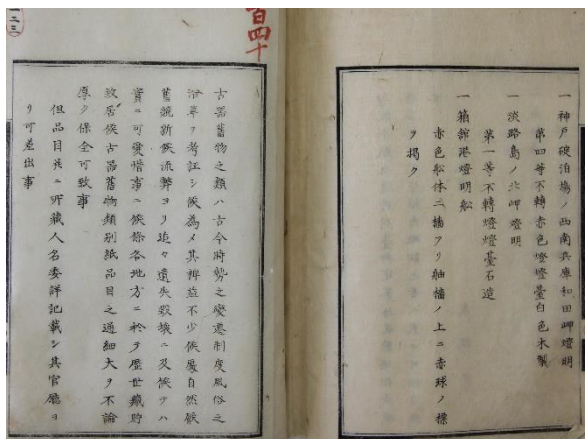 一神戸碇泊場ノ西南兵庫和田岬燈明
第四等不轉赤色燈燈臺白色木製
一淡路島ノ北岬燈明
第一等不轉燈燈臺石造
一箱館港燈明舩
赤色舩体二檣アリ舳檣ノ上ニ赤球ノ標
ヲ掲ク
百四十
古器舊物之類ハ古今時勢之變遷制度風俗之
沿革ヲ考証シ候為メ其裨益不少候處自然厭
舊競新候流弊ヨリ追々遺失毀壞ニ及候テハ
實ニ可愛惜事ニ候條各地方ニ於テ歴世藏貯
致居候古器舊物類別紙品目之通細大ヲ不論
厚ク保全可致事
但品目并ニ所藏人名委詳記載シ其官廳ヨ
リ可差出事